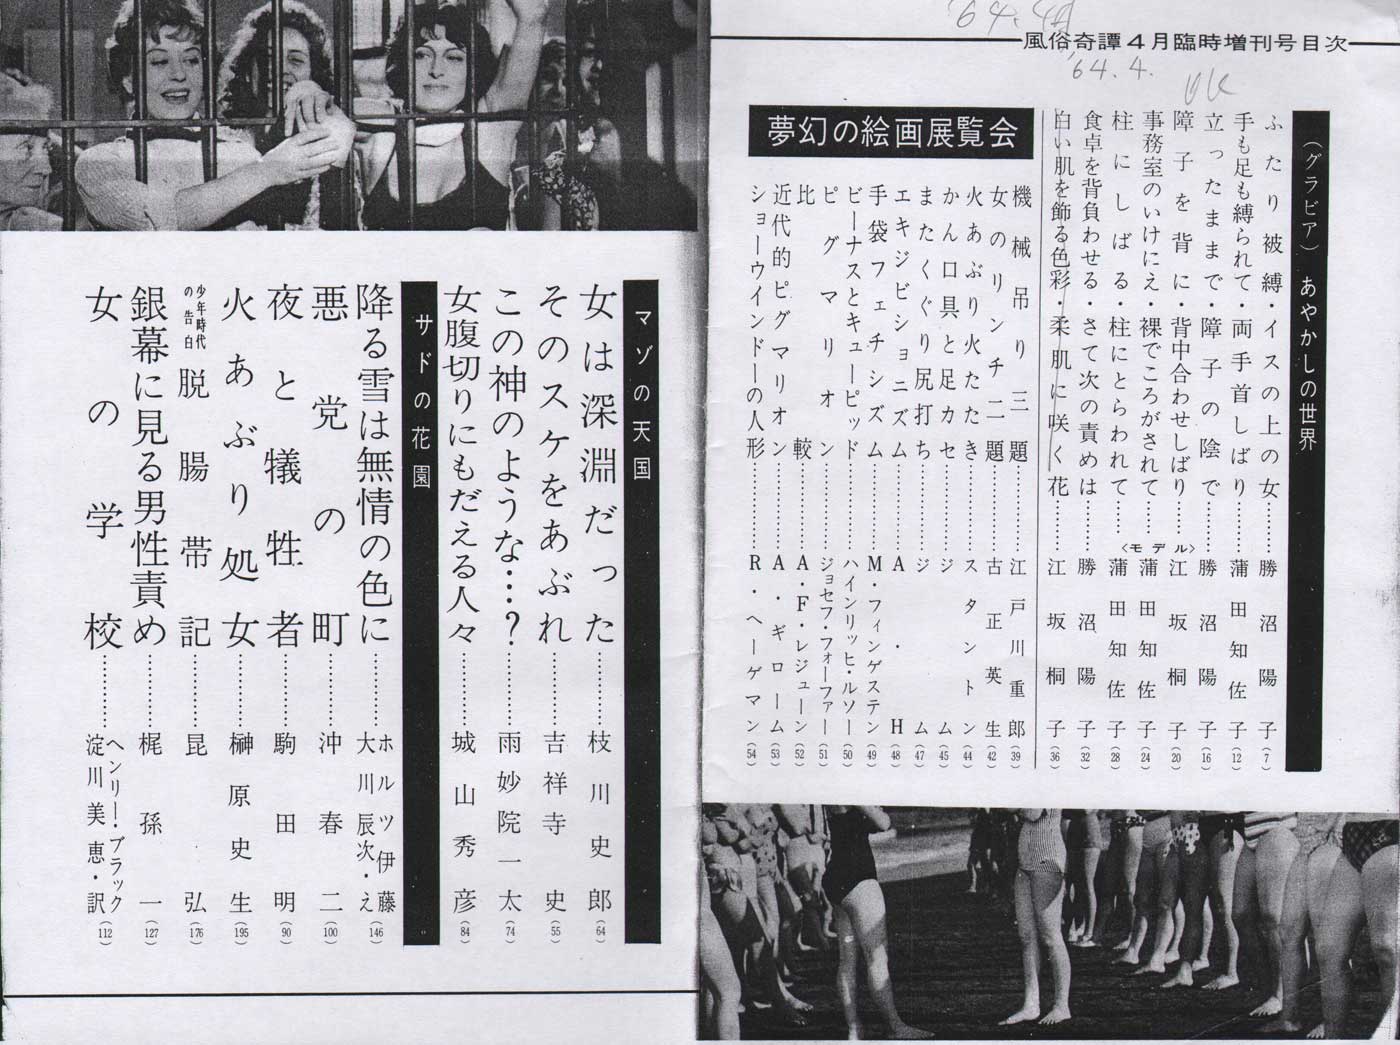 '64.4月
風俗奇譚4月臨時増刊号目次
'64.4.
OK
（グラビア） あやかしの世界
ふたり被縛・イスの上の女………勝沼陽子(7)
手も足も縛られて・両手首しばり………蒲田知佐子(12)
立ったままで・障子の陰で………勝沼陽子(16)
障子を背に・背中合わせしばり………江坂桐子(20)
事務室のいけにえ・裸でころがされて………蒲田知佐子(24)
柱にしばる・柱にとらわれて………蒲田知佐子(28)
食卓を背負わせる・さて次の責めは………勝沼陽子(32)
白い肌を飾る色彩・柔肌に咲く花………江坂桐子(36)
〈モデル〉
夢幻の絵画展覧会
機械吊り三題………江戸川重郎(39)
女のリンチ二題………古正英生(42)
火あぶり火たたき………スタントン(44)
かん口具と足カセ………ジム(45)
またくぐり尻打ち………ジム(47)
エキジビショニズム………A・H(48)
手袋フェチシズム………M・フィンゲステン(49)
ビーナスとキューピッド………ハインリッヒ・ルソー(50)
ピグマリオン………ジョセフ・フォーファー(51)
比較………A・F・レジューン(52)
近代的ピグマリオン………A・ギローム(53)
ショーウインドーの人形………R・ヘーゲマン(54)
マゾの天国
女は深淵だった………枝川史郎(64)
そのスケをあぶれ………吉祥寺史(55)
この神のような…？………雨妙院一太(74)
女腹切りにもだえる人々………城山秀彦(84)
サドの花園
降る雪は無情の色に………ホルツ伊藤 大川辰次・え(146)
悪党の町………沖春二(100)
夜と犠牲者………駒田明(90)
火あぶり処女………榊原史生(195)
少年時代の告白 脱腸帯記………昆弘(176)
銀幕に見る男性責め………梶孫一(127)
女の学校………ヘンリー・ブラック 淀川美恵・訳(112)